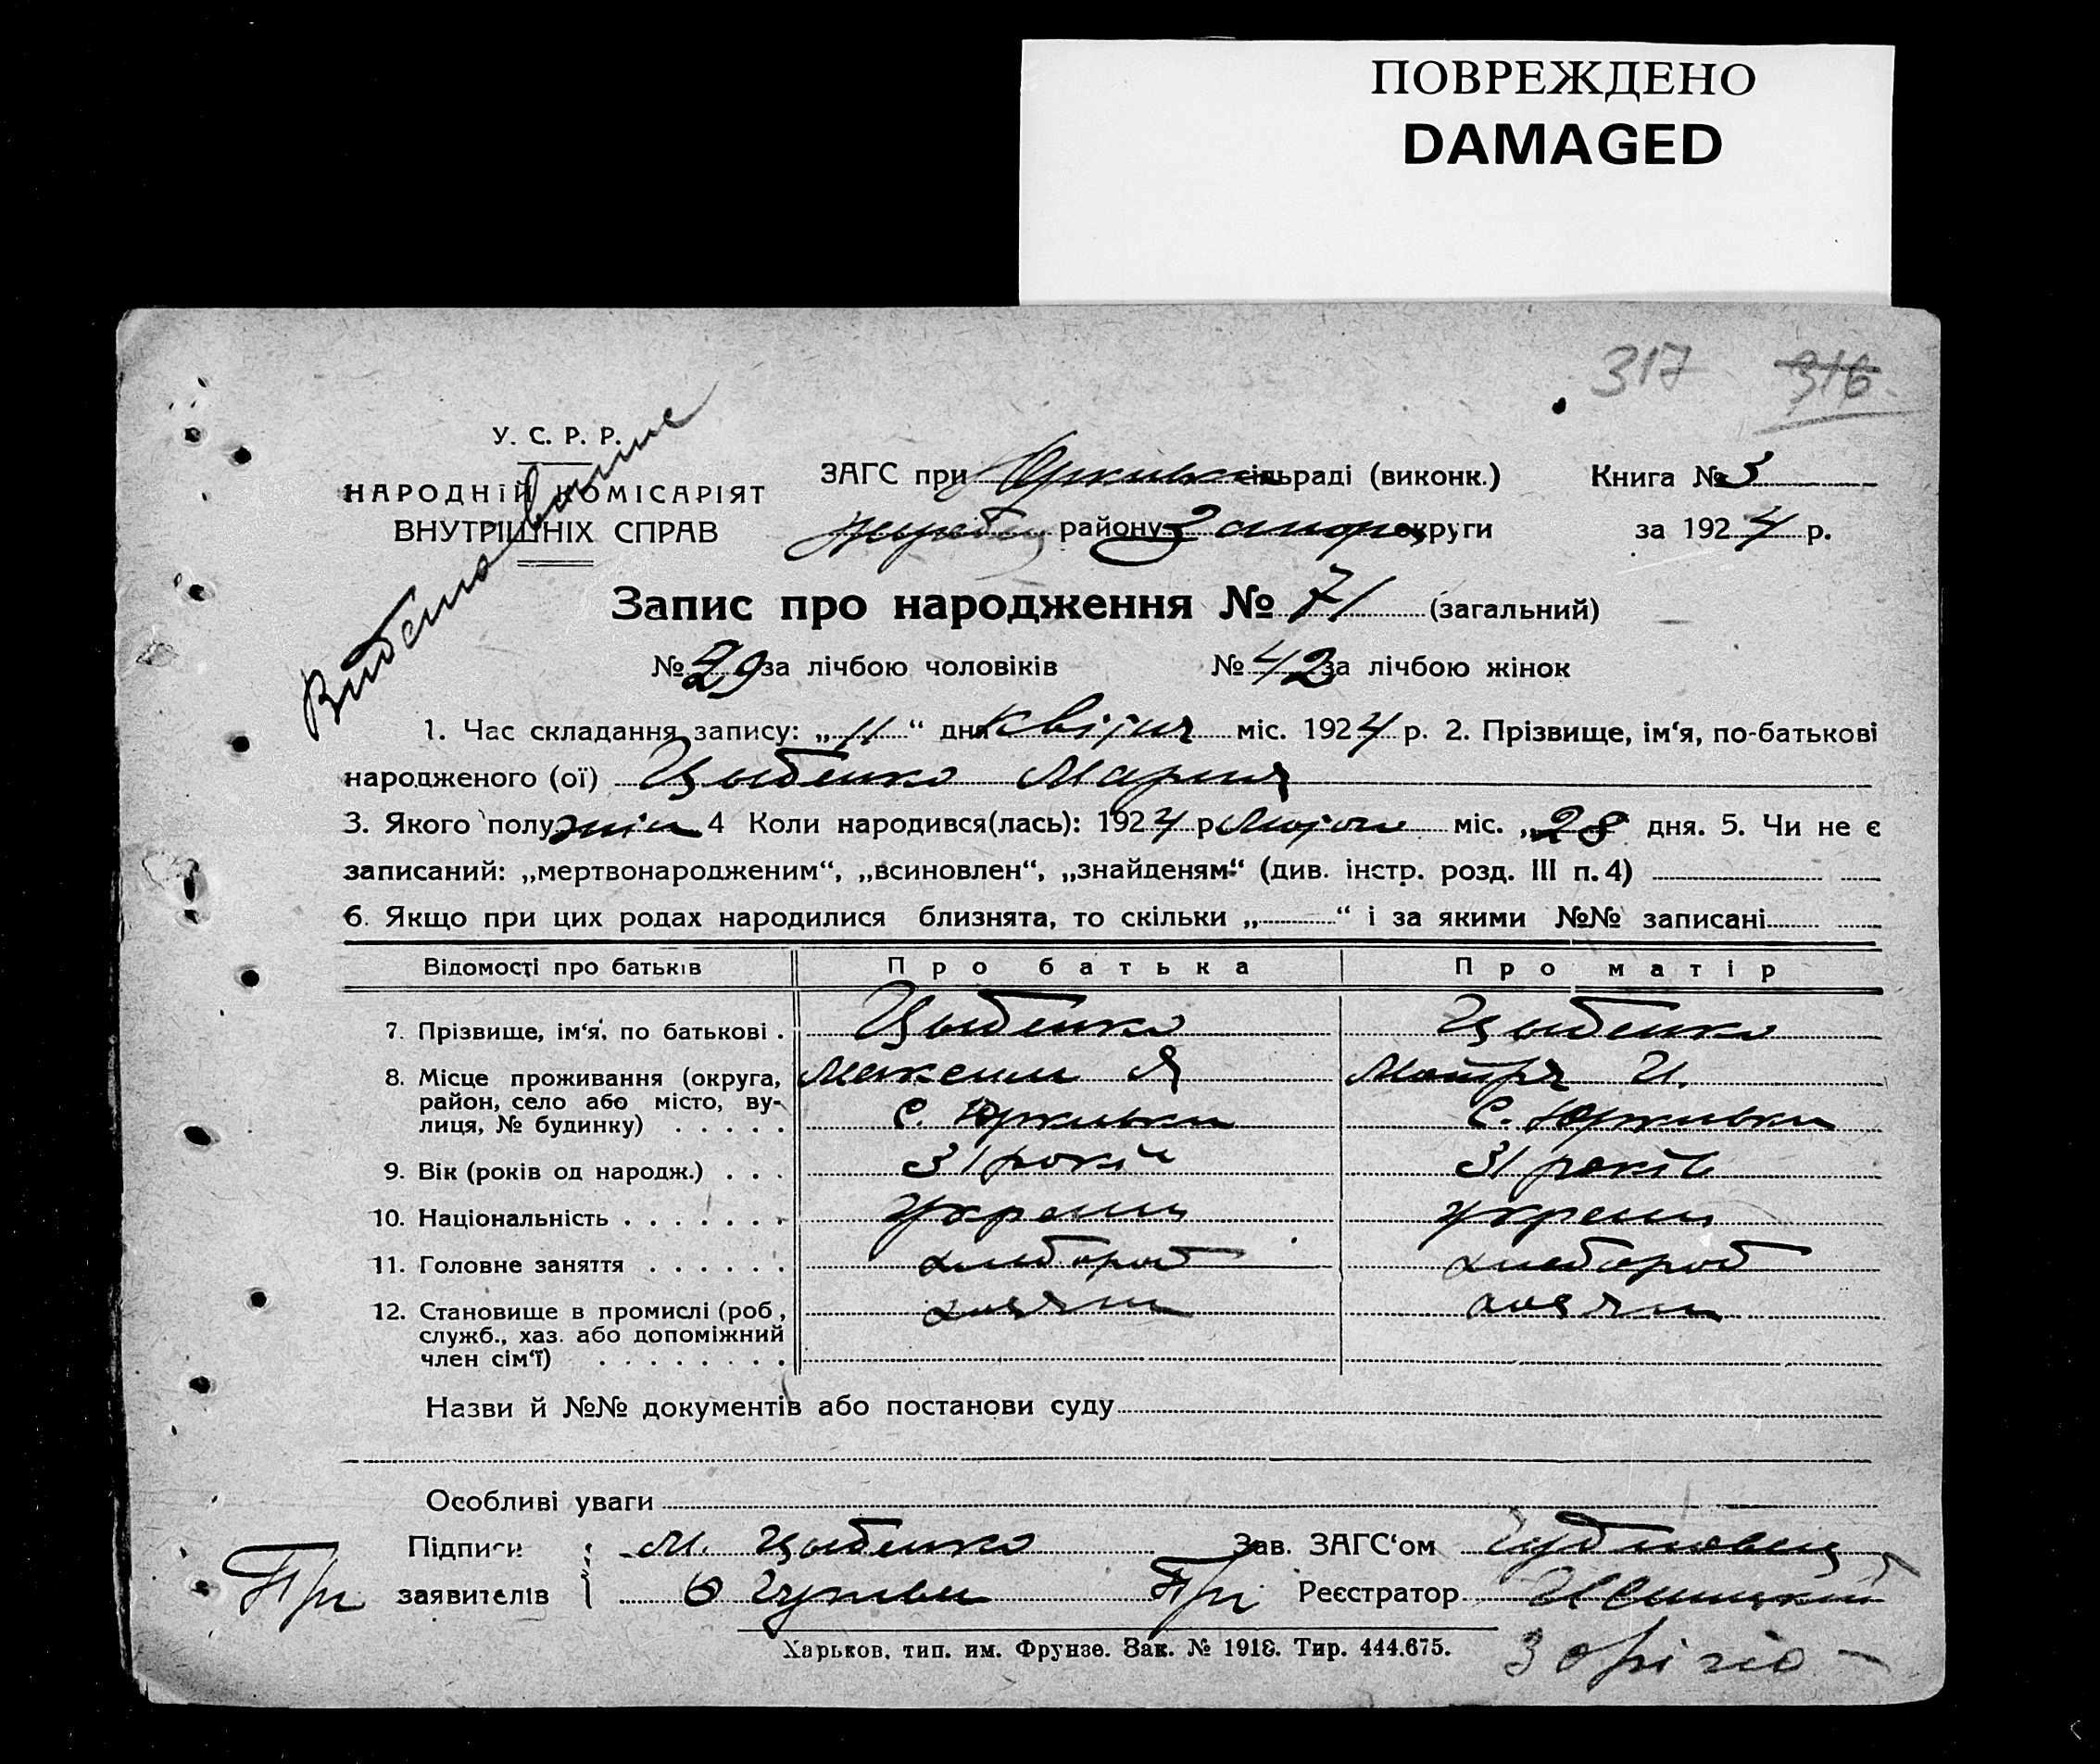 ПОВРЕЖДЕНО
DAMAGED
317 316
У. С. Р. Р.
НАРОДНІЙ КОМІСАРІЯТ
ВНУТРІШНІХ СПРАВ
ЗАГС при сільраді (виконк.) Книга № 3
району Запор округи за 1924 р.
Запис про народження № 71 (загальний)
№ 29 за лічбою чоловіків № 42 за лічбою жінок
1. Час складання запису: „11“ дня квітня міс. 1924 р. 2. Прізвище, ім‘я, по-батькові
народженого (ої) Цыбенко Мария
3. Якого полу жін 4 Коли народився(лась): 1924 р міс. „28 дня. 5. Чи не є
записаний: „мертвонародженим“, „всиновлен“, „знайденям“ (див. інстр. розд. III п. 4)
6. Якщо при цих родах народилися близнята, то скільки „ “ і за якими №№ записані
Відомості про батьків Про батька Про матір
7. Прізвище, ім‘я, по батькові . Цыбенко Цыбенко
8. Місце проживання (округа, Максим Я Мотря И.
район, село або місто, ву-
лиця, № будинку) . . . . . с. Юркивки с. Юркивки
9. Вік (років од народж.) . . . 31 років 31 років
10. Національність . . . . . . . Украинц украинц
11. Головне заняття . . . . . . хлебороб хлебороб
12. Становище в промислі (роб, хозяин хозяин
служб., хаз. або допоміжний
член сім‘ї) . . . . . . . .
Назви й №№ документів або постанови суду
Особливі уваги
Підписи М. Цыбенко Зав. ЗАГС‘ом
заявителів Реєстратор
Харьков, тип. им. Фрунзе. Зак. № 1918. Тир. 444.675.